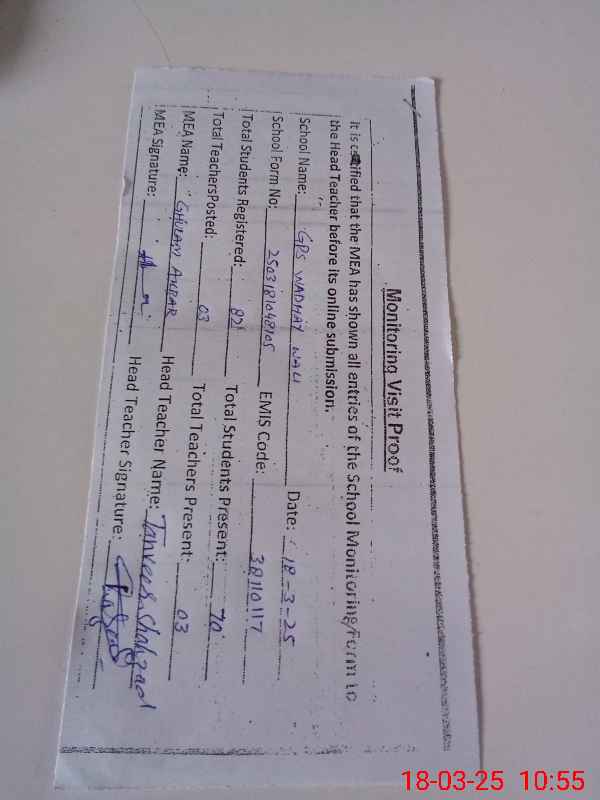 Monitoring Visit Proof
It is certified that the MEA has shown all entries of the School Monitoring Form to
the Head Teacher before its online submission.
School Name: GPS WADHAY WALI Date: 18-3-25
School Form No: 2503181048105 EMIS Code: 38110117
Total Students Registered: 82 Total Students Present: 70
Total TeachersPosted: 03 Total Teachers Present: 03
MEA Name: GHULAM AKBAR Head Teacher Name: Tanveer Shahzad
MEA Signature: Head Teacher Signature:
18-03-25 10:55